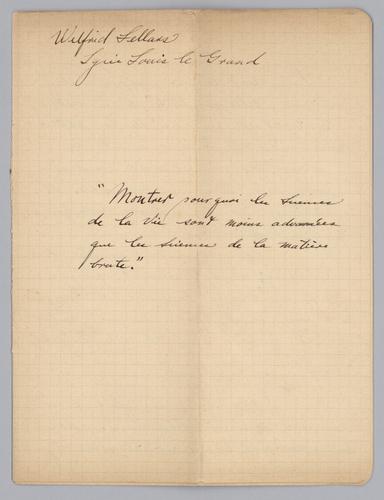 Wilfrid Sellars
Lycée Louis le Grand
"Montrer pourquoi les sciences
de la vie sont moins advancées
que les sciences de la matière
brute."